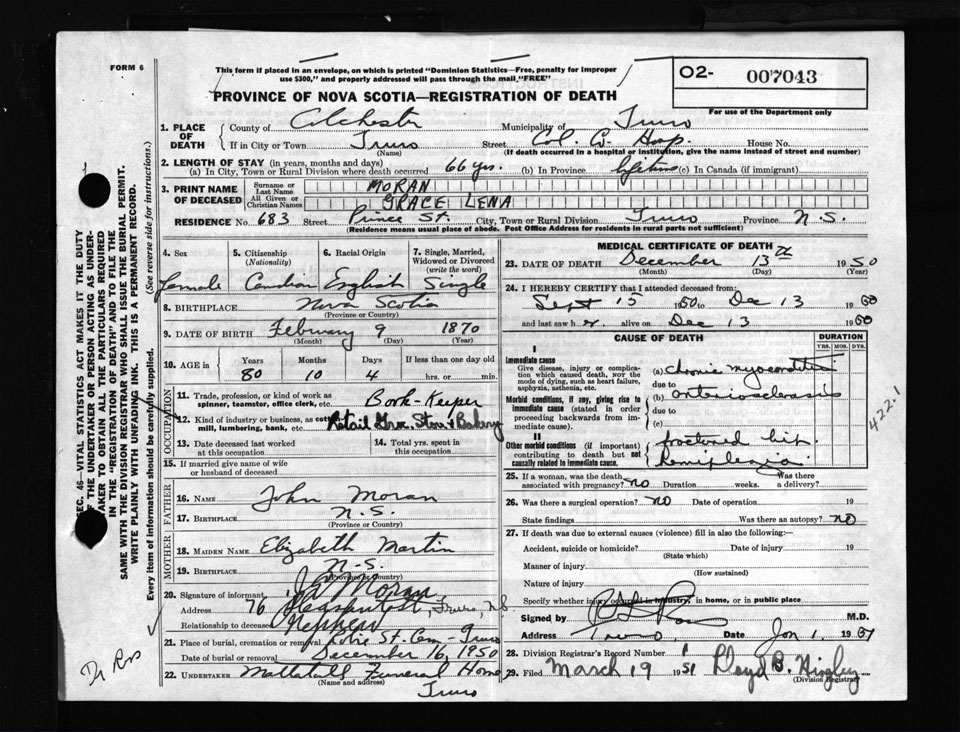 FORM 6
This form if placed in an envelope, on which is printed "Dominion Statistics—Free, penalty for improper
use $300," and properly addressed will pass through the mail, "FREE"
O2- 007043
For use of the Department only
PROVINCE OF NOVA SCOTIA—REGISTRATION OF DEATH
1. PLACE OF DEATH
County of Colchester Municipality of Truro
If in City or Town Truro Street Col. Co. Hosp. House No.
(Name) (If death occurred in a hospital or institution, give the name instead of street and number)
2. LENGTH OF STAY (in years, months and days)
(a) In City, Town or Rural Division where death occurred 66 yrs. (b) In Province lifetime (c) In Canada (if immigrant)
3. PRINT NAME OF DECEASED
Surname or Last Name MORAN
All Given or Christian Names GRACE LENA
RESIDENCE No. 683 Street Prince St. City, Town or Rural Division Truro Province N.S.
(Residence means usual place of abode. Post Office Address for residents in rural parts not sufficient)
4. Sex 5. Citizenship (Nationality) 6. Racial Origin 7. Single, Married, Widowed or Divorced (write the word)
Female Canadian English Single
8. BIRTHPLACE Nova Scotia
(Province or Country)
9. DATE OF BIRTH February 9 1870
(Month) (Day) (Year)
10. AGE in Years Months Days If less than one day old
80 10 4 hrs. or min.
OCCUPATION
11. Trade, profession, or kind of work as spinner, teamster, office clerk, etc. Book-Keeper
12. Kind of industry or business, as cotton mill, lumbering, bank, etc. Retail Groc. Store & Bakery
13. Date deceased last worked at this occupation
14. Total yrs. spent in this occupation
15. If married give name of wife or husband of deceased
FATHER
16. NAME John Moran
17. BIRTHPLACE N.S.
(Province or Country)
MOTHER
18. MAIDEN NAME Elizabeth Martin
19. BIRTHPLACE N.S.
(Province or Country)
20. Signature of informant Moran
Address 76 Pleasant St., Truro, N.S.
Relationship to deceased Nephew
21. Place of burial, cremation or removal Robie St. Cem - Truro
Date of burial or removal December 16, 1950
22. UNDERTAKER Mattatall's Funeral Home
(Name and address)
Truro
MEDICAL CERTIFICATE OF DEATH
23. DATE OF DEATH December 13th 1950
(Month) (Day) (Year)
24. I HEREBY CERTIFY that I attended deceased from:
Sept 15 1950 to Dec 13 1950
and last saw her alive on Dec 13 1950
CAUSE OF DEATH DURATION
YRS. MOS. DYS.
I
Immediate cause
Give disease, injury or complication which caused death, not the mode of dying, such as heart failure, asphyxia, asthenia, etc.
(a) chronic myocarditis
due to
Morbid conditions, if any, giving rise to immediate cause (stated in order proceeding backwards from immediate cause)
(b) arteriosclerosis
due to
(c)
II
Other morbid conditions (if important) contributing to death but not causally related to immediate cause.
fractured hip
hemiplegia
422.1
25. If a woman, was the death associated with pregnancy? no Duration weeks. Was there a delivery?
26. Was there a surgical operation? no Date of operation 19
State findings Was there an autopsy? no
27. If death was due to external causes (violence) fill in also the following:
Accident, suicide or homicide? Date of injury 19
(State which)
Manner of injury
(How sustained)
Nature of injury
Specify whether injury occurred in industry, in home, or in public place
Signed by M.D.
Address Truro Date Jan 1, 1951
28. Division Registrar's Record Number 1
29. Filed March 19 1951 Lloyd B. Hingley
(Division Registrar)
SEC. 46—VITAL STATISTICS ACT MAKES IT THE DUTY
OF THE UNDERTAKER OR PERSON ACTING AS UNDERTAKER TO OBTAIN ALL THE PARTICULARS REQUIRED
IN THE "REGISTRATION OF DEATH" AND TO FILE THE
SAME WITH THE DIVISION REGISTRAR WHO SHALL ISSUE THE BURIAL PERMIT.
WRITE PLAINLY WITH UNFADING INK. THIS IS A PERMANENT RECORD.
Every item of information should be carefully supplied. (See reverse side for instructions.)
Dr Ross